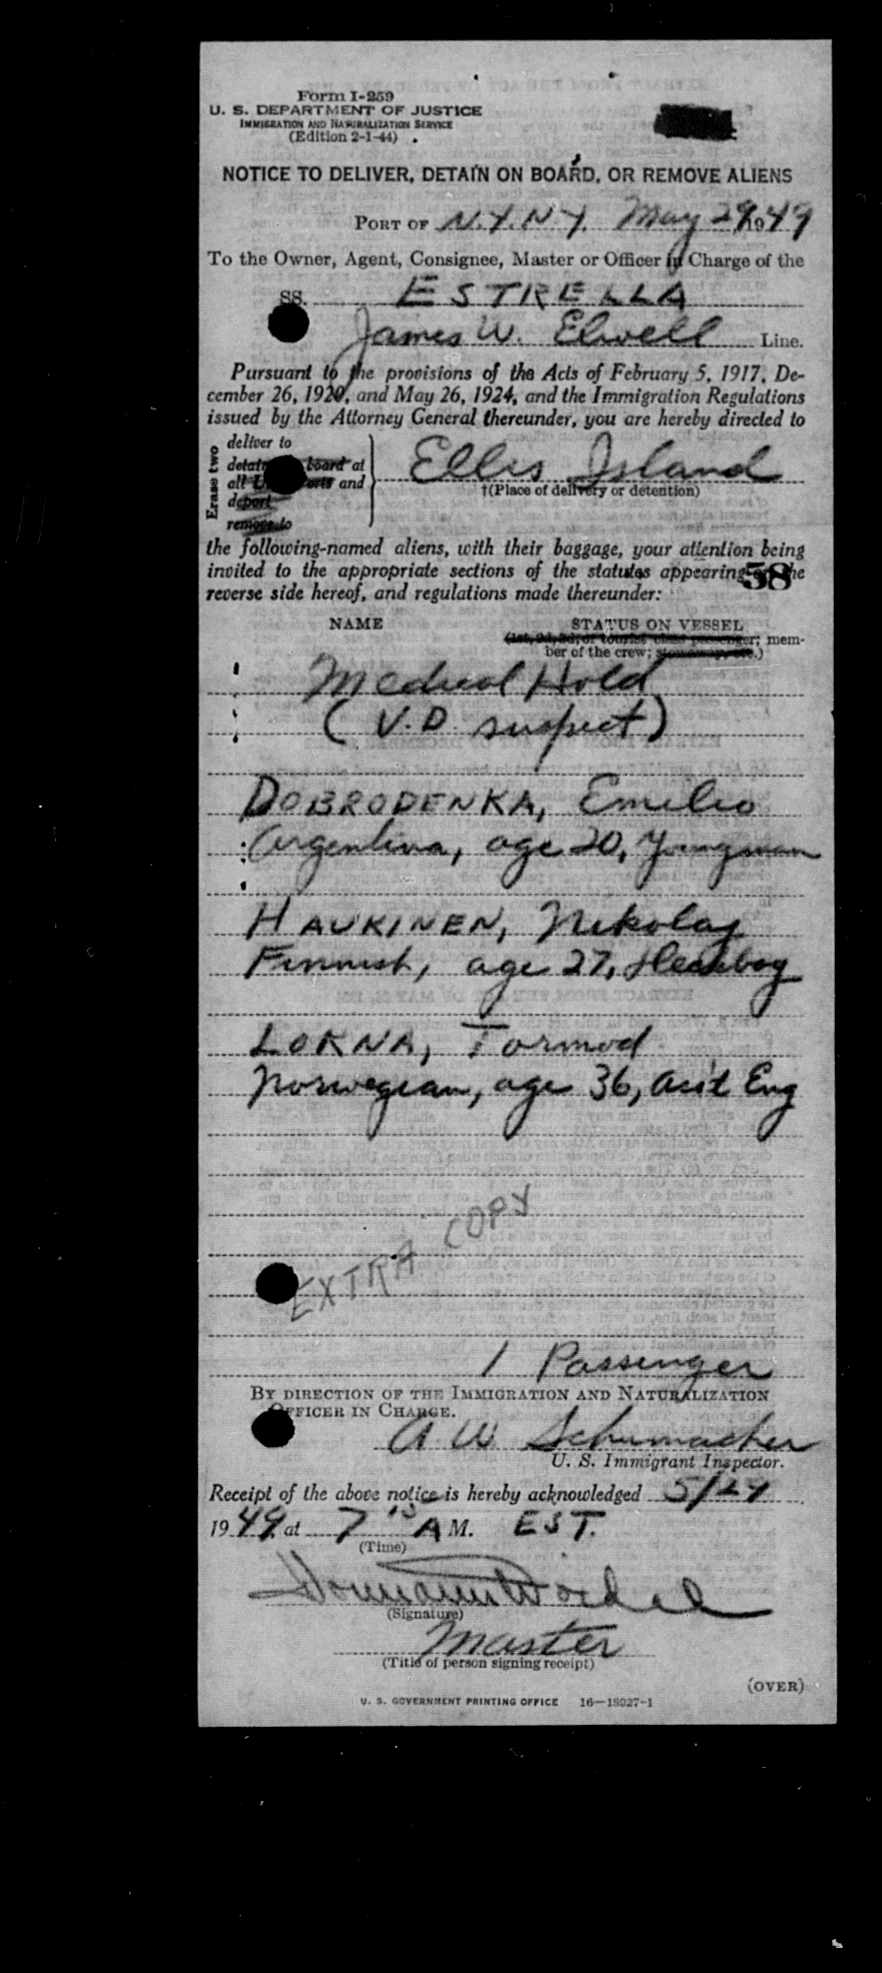 Form I-259
U. S. DEPARTMENT OF JUSTICE
IMMIGRATION AND NATURALIZATION SERVICE
(Edition 2-1-44)
NOTICE TO DELIVER, DETAIN ON BOARD, OR REMOVE ALIENS
PORT OF N.Y. N.Y. May 29, 1949
To the Owner, Agent, Consignee, Master or Officer in Charge of the
SS. ESTRELLA
James W. Elwell Line.
Pursuant to the provisions of the Acts of February 5, 1917, De-
cember 26, 1920, and May 26, 1924, and the Immigration Regulations
issued by the Attorney General thereunder, you are hereby directed to
Erase two
deliver to
detain board at
all and
deport
remove to
Ellis Island
†(Place of delivery or detention)
the following-named aliens, with their baggage, your attention being
invited to the appropriate sections of the statutes appearing on the
58
reverse side hereof, and regulations made thereunder:
NAME STATUS ON VESSEL
(1st, 2d, 3d, or tourist class passenger; mem-
ber of the crew; stowaway, etc.)
Medical Hold
(V.D. suspect)
DOBRODENKA, Emilio
Argentina, age 20, Youngman
HAUKINEN, Nikolaj
Finnish, age 27, Messboy
LORNA, Tormod
Norwegian, age 36, Ass't Eng
EXTRA COPY
1 Passenger
BY DIRECTION OF THE IMMIGRATION AND NATURALIZATION
OFFICER IN CHARGE.
A W Schumacher
U. S. Immigrant Inspector.
Receipt of the above notice is hereby acknowledged 5/29
1949 at 7 15 A M. EST.
(Time)
(Signature)
Master
(Title of person signing receipt)
(OVER)
U. S. GOVERNMENT PRINTING OFFICE 16—18027-1